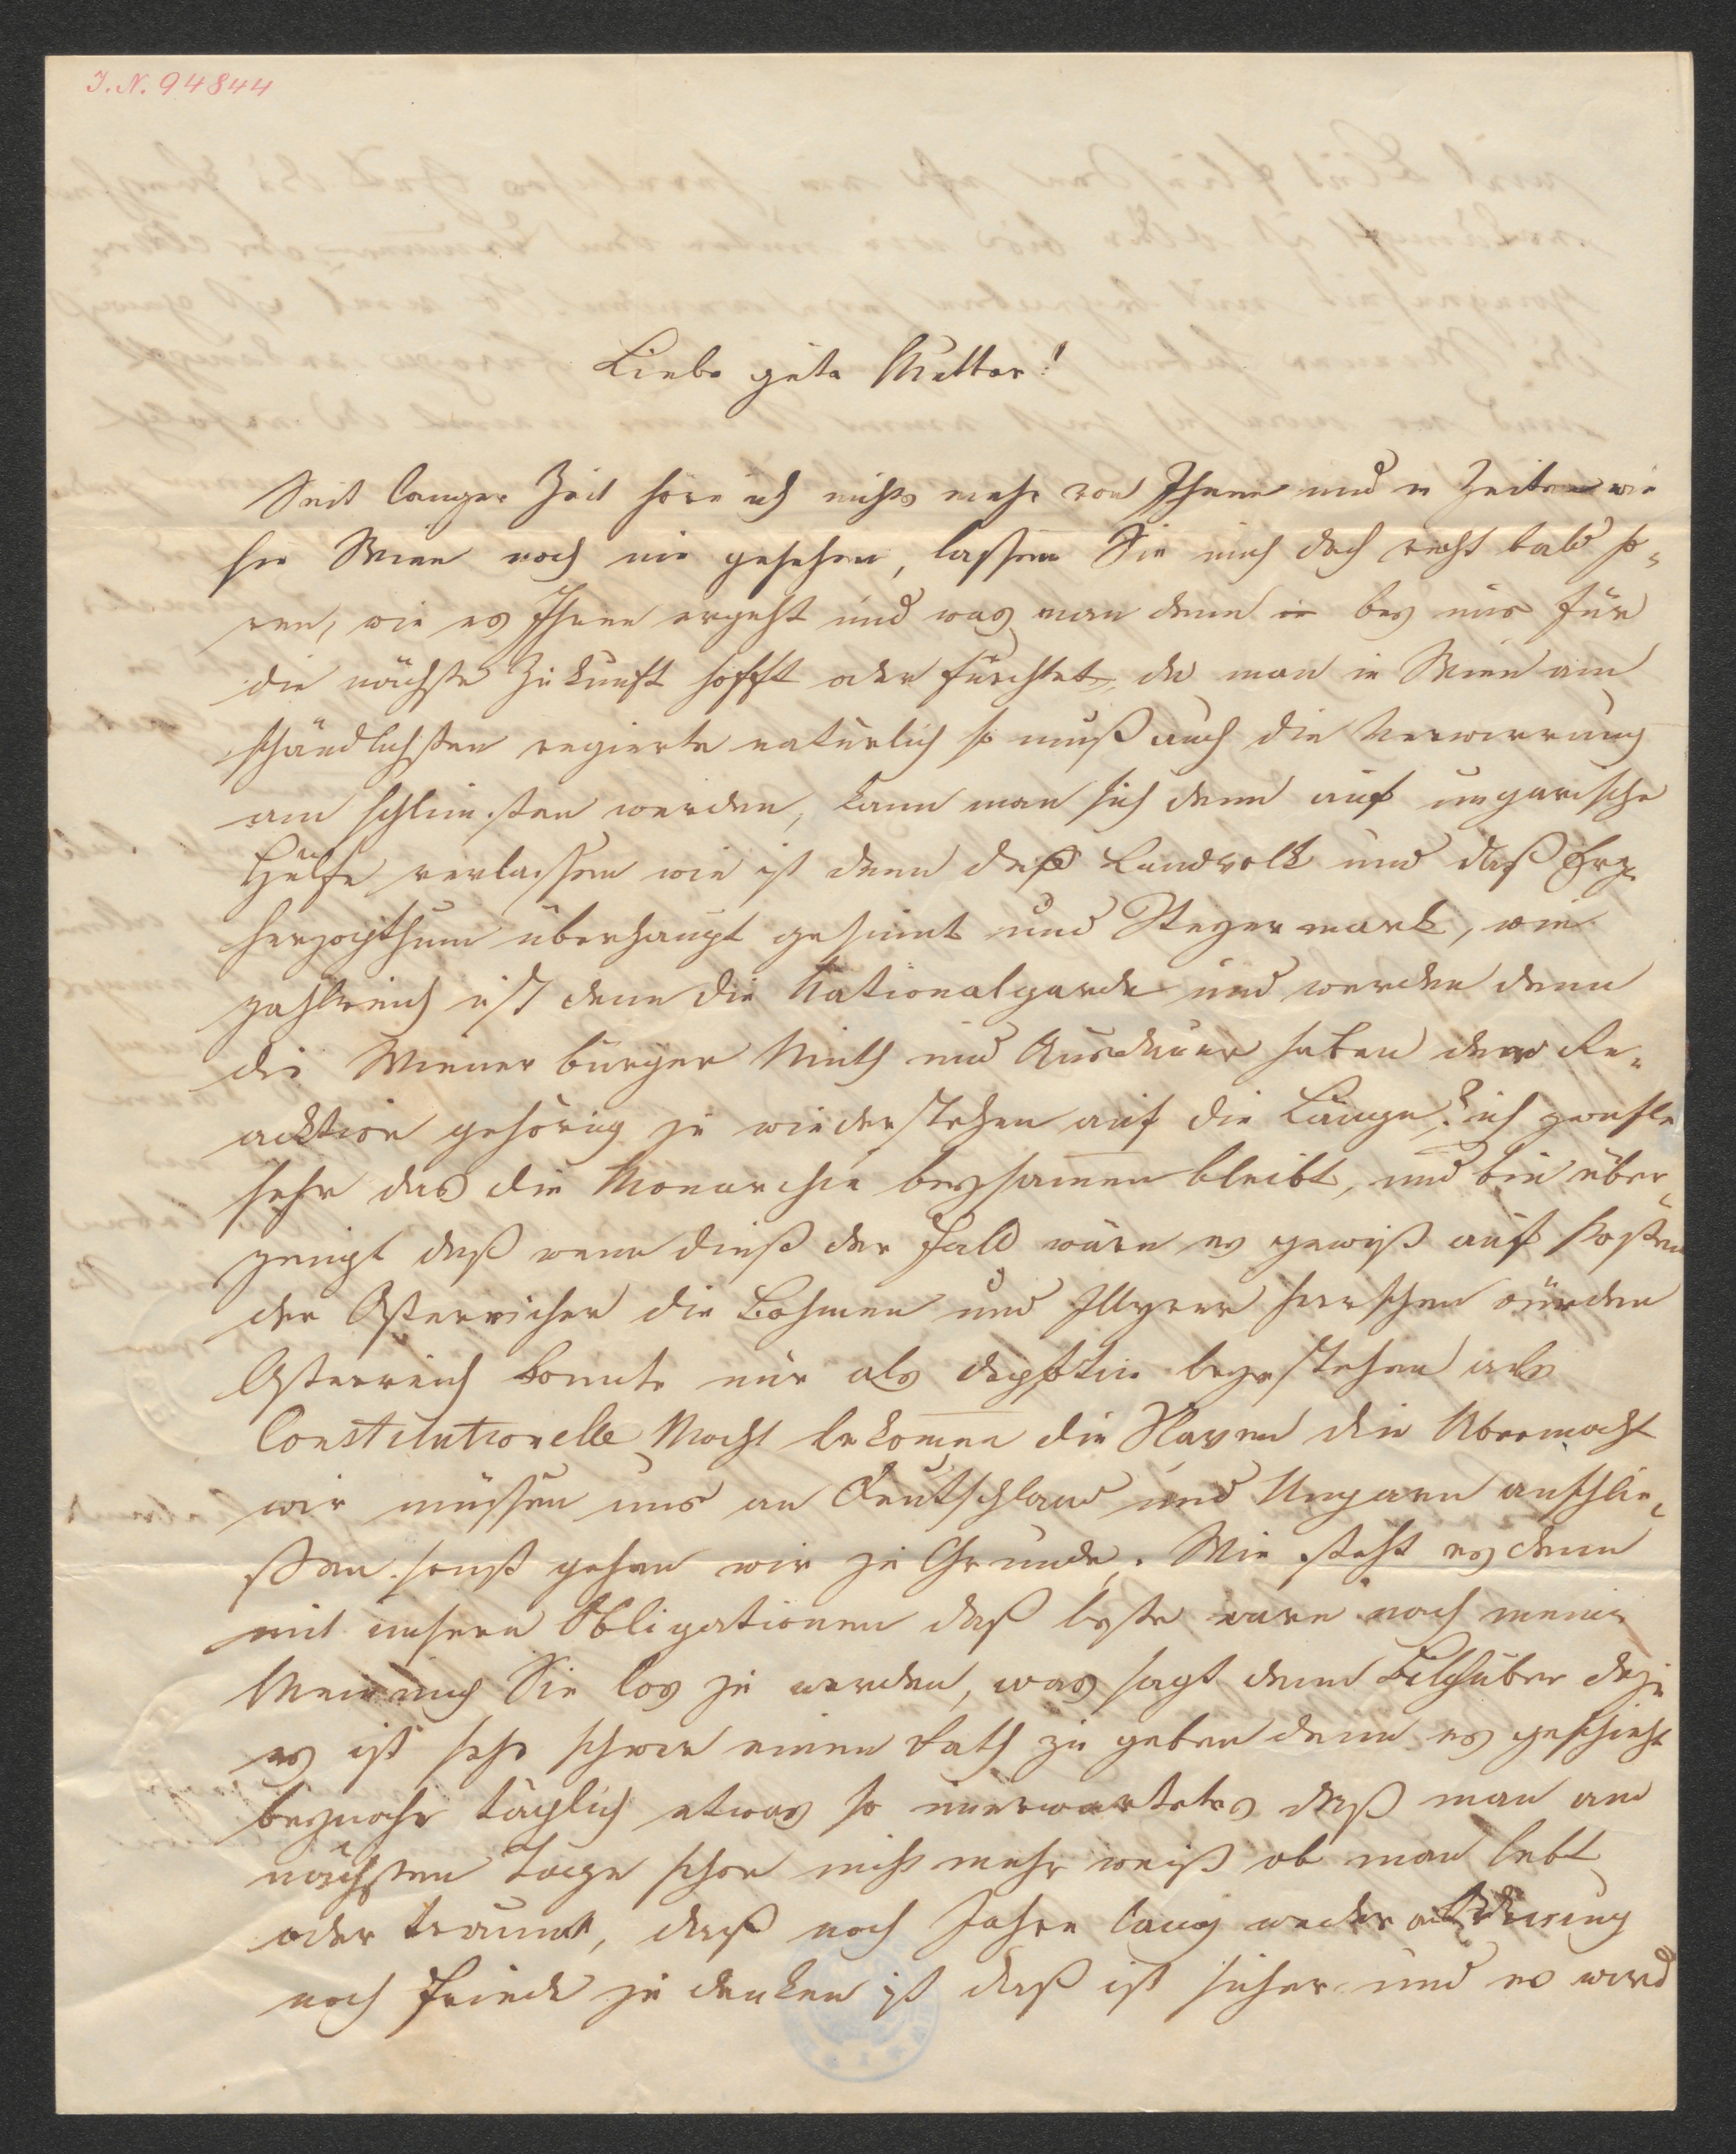 I. N. 94844
Liebe gute Mutter!
Seit langer Zeit höre ich nichts mehr von Ihnen und in Zeiten wie
sie Wien noch nie gesehen, lassen Sie mich doch recht bald hö„
ren, wie es Ihnen ergeht und was man denn bey uns für
die nächste Zukunft hofft oder fürchtet, da man in Wien am
schändlichsten regierte natürlich so muß auch die Verwirrung
am schlimsten werden, kann man sich denn auf ungarische
Hülfe verlassen wie ist denn daß Landvolk und daß Erz
herzogthum überhaupt gesinnt und Steyermark, wie
zahlreich ist denn die Nationalgarde und werden denn
die Wiener bürger Muth und Ausdauer haben der Re„
acktion gehörig zu wiederstehen auf die Länge? ich zweifle
sehr das die Monarchie beysamen bleibt, und bin über„
zeugt daß wenn dieß der Fall wäre es gewiß auf Kosten
der Östereicher die Böhmen und Illyrer herschen würden
Österreich konnte nur als despotie bestehen als
Constitutionelle Macht bekomen die Slaven die Übermacht
wir müssen uns an Deutschland und Ungarn anschlie„
ßen sonst gehen wir zu Grunde. Wie steht es denn
mit unsern Obligationen daß beste wäre nach meiner
Meinung Sie los zu werden, was sagt denn dazu
es ist sehr schwer einen Rath zu geben denn es geschieht
beynahe täglich etwas so unerwartetes daß man am
nächsten Tage schon nicht mehr weiß ob man lebt
oder träumt, daß noch Jahre lang weder an Ordnung
noch Friede zu denken ist daß ist sicher und es wird